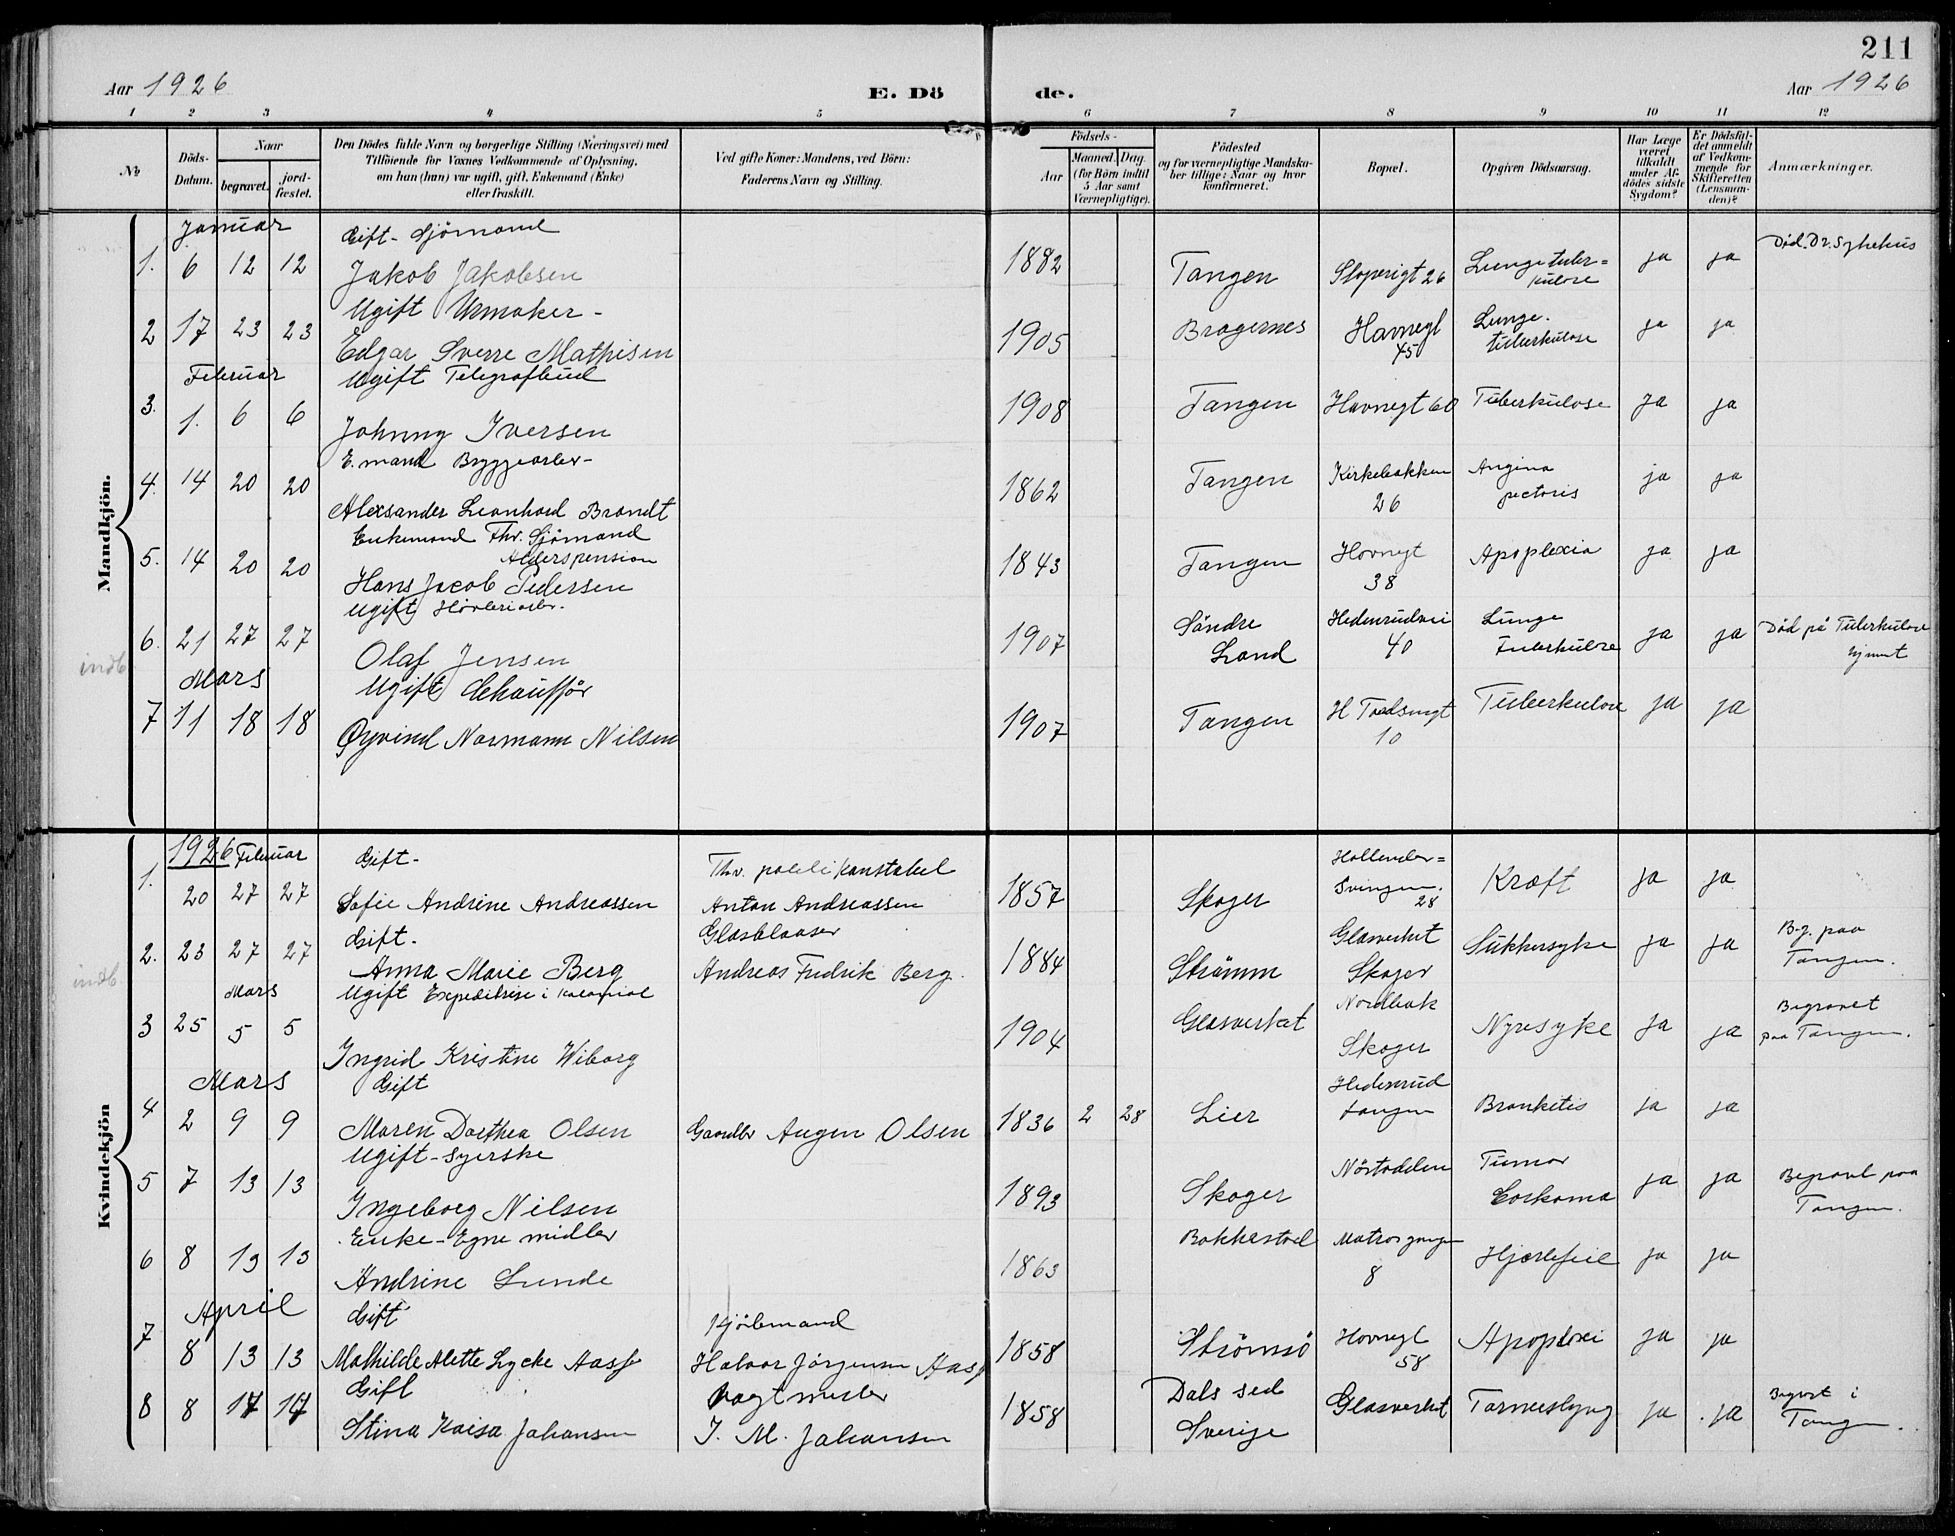 211
Aar 1926
E. Dö de.
Aar 1926
1 2 3 4 5 6 7 8 9 10 11 12
No
Döds-Datum.
Naar
begravet.
jord-fæstet.
Den Dödes fulde Navn og borgerlige Stilling (Næringsvei) med
Tilföiende for Voxnes Vedkommende af Oplysning,
om han (hun) var ugift, gift, Enkemand (Enke)
eller fraskilt.
Ved gifte Koner: Mandens, ved Börn:
Faderens Navn og Stilling.
Födsels-
Aar
Maaned. Dag.
(for Börn indtil
5 Aar samt
Værnepligtige).
Födested
og for værnepligtige Mandska-
ber tillige: Naar og hvor
konfirmeret.
Bopæl.
Opgiven Dödsaarsag.
Har Læge
været
tilkaldt
under Af-
dödes sidste
Sygdom?
Er Dödsfal-
det anmeldt
af Vedkom-
mende for
Skifteretten
(Lensman-
den)?
Anmærkninger.
Mandkjön.
Januar
Gift - Sjömand
1. 6 12 12 Jakob Jakobsen 1882 Tangen 26 Lungetuber=kulose ja ja Död. Dr. Sykehus
Ugift Urmaker -
2 17 23 23 Edgar Sverre Mathisen 1905 Bragernes Havnegt 45 Lunge.tuberkulose ja ja
Februar
Ugift Telegrafbud
3. 1. 6 6 Johnny Iversen 1908 Tangen Havnegt 60 Tuberkulose ja ja
E.mand Bryggearbr-
4. 14 20 20 Alexsander Leonhard Brandt 1862 Tangen Kirkebakken 26 Angina pectoris ja ja
Enkemand Fhv. Sjömand
Alderspension
5. 14 20 20 Hans Jacob Pedersen 1843 Tangen Havnegt 38 Apoplexia ja ja
Ugift Hövleriarbr.
6. 21 27 27 Olaf Jensen 1907 Söndre Land Hedenrudvei 40 Lunge Tuberkulose ja ja Död på Tuberkulose hjemmet
indb
Mars
Ugift Schauffør
7 11 18 18 Øyvind Normann Nilsen 1907 Tangen H Tordsengt 10 Tuberkulose ja ja
Kvindekjön
1926 Februar
Gift- Fhv. politikonstabel
1. 20 27 27 Sofie Andrine Andreassen Anton Andreassen 1857 Skoger Hollender=Svingen. 28 Kræft ja ja
Gift. Glasblaaser
2. 23 27 27 Anna Marie Berg Andreas Fredrik Berg. 1884 Strömm Glasverket Skoger Sukkersyke ja ja Bg. paa Tangen.
indb
Mars
Ugift Expeditrise i kolonial
3 25 5 5 Ingrid Kristine Wiborg 1904 Glasverket Nordbak Skoger Nyresyke ja ja Begravet paa Tangen.
Mars
Gift
4 2 9 9 Maren Dorthea Olsen Gaardbr Augen Olsen 1836 2 28 Lier Hedenrud tangen Bronkitis ja ja
Ugift - Syerske
5 7 13 13 Ingeborg Nilsen 1893 Skoger Nöstodden Tumor ja ja Begravt paa Tangen.
Enke - Egne midler
6 8 13 13 Andrine Lunde 1863 Bakkestad Matrosgangen 8 Hjertefeil ja ja
April
Gift Kjölemand
7 8 13 13 Mathilde Alette Lycke Aass Halvor Jörgensen Aass 1858 Strömsö Havnegt 58 Apoplexi ja ja
Gift Vagtmester
8 8 17 17 Stina Kaisa Johansen J. M. Johansen 1858 Dals sed Sverige Glasverket Tarmeslyng ja ja Begrvt i Tangen.